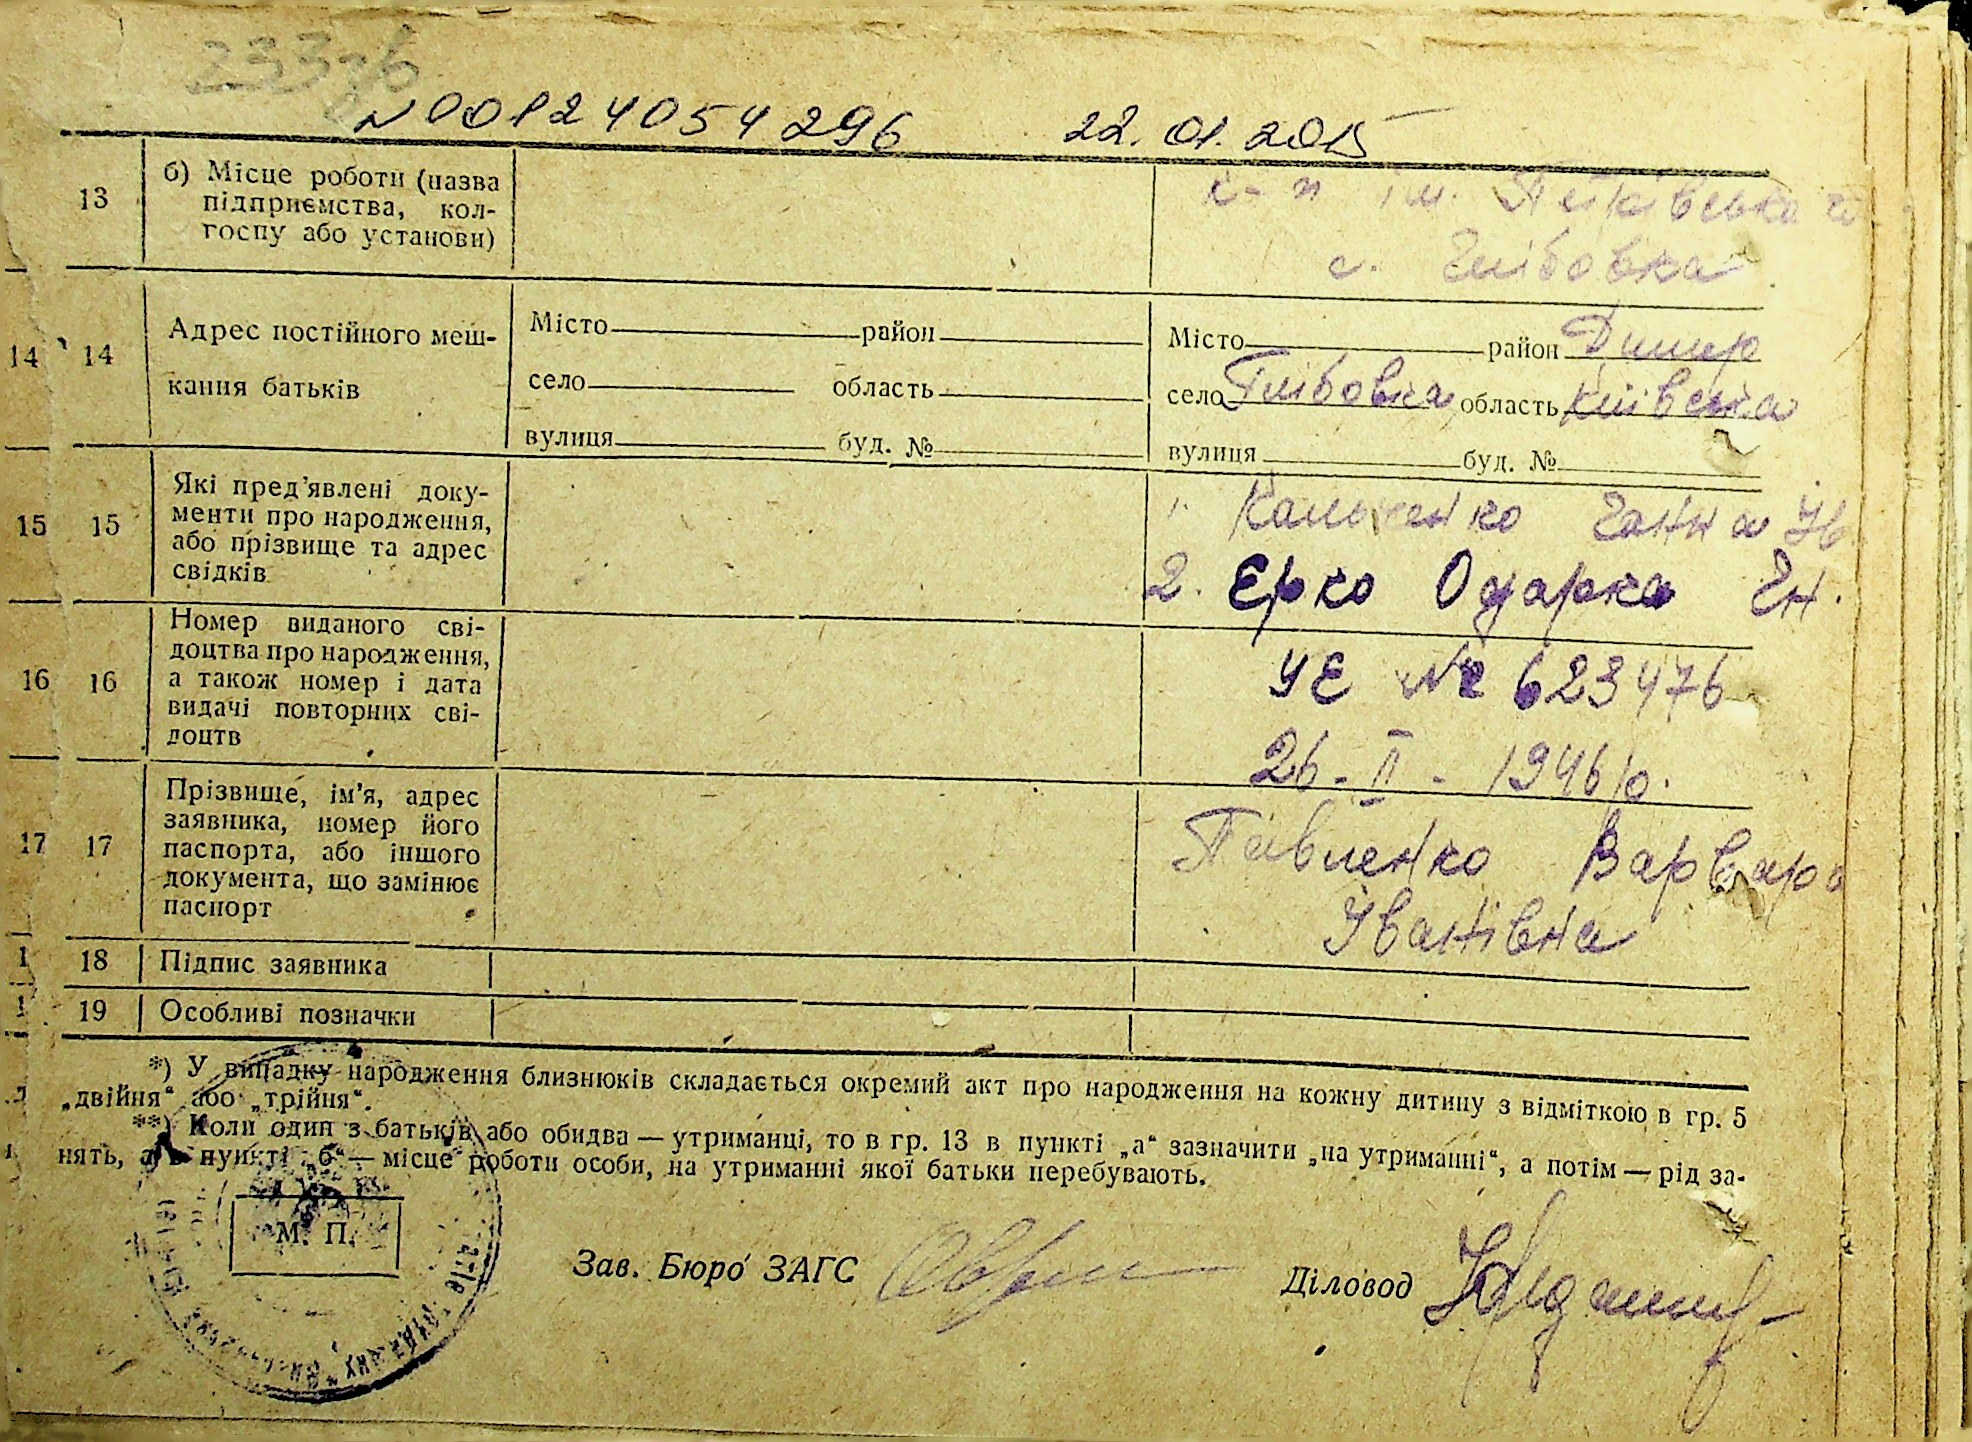 233зб
N00124054296 22.01.2015
13 б) Місце роботи (назва
підприємства, кол-
госпу або установи)
к-п ім. Петрівського
с. Глібовка
14 14 Адрес постійного меш-
кання батьків
Місто район
село область
вулиця буд. №
Місто район Димер
село Глібовка область Київська
вулиця буд. №
15 15 Які пред'явлені доку-
менти про народження,
або прізвище та адрес
свідків
1. Ганна Ів
2. Єрко Одарка Гн.
16 16 Номер виданого сві-
доцтва про народження,
а також номер і дата
видачі повторних сві-
доцтв
УЄ № 623476
26-II-1946 р.
17 17 Прізвище, ім'я, адрес
заявника, номер його
паспорта, або іншого
документа, що замінює
паспорт
Павленко Варвара
Іванівна
1 18 Підпис заявника
1 19 Особливі позначки
*) У випадку народження близнюків складається окремий акт про народження на кожну дитину з відміткою в гр. 5
„двійня“ або „трійня“.
**) Коли один з батьків або обидва — утриманці, то в гр. 13 в пункті „а“ зазначити „на утриманні“, а потім — рід за-
нять, а в пункті „б“ — місце роботи особи, на утриманні якої батьки перебувають.
М. П.
Зав. Бюро ЗАГС
Діловод